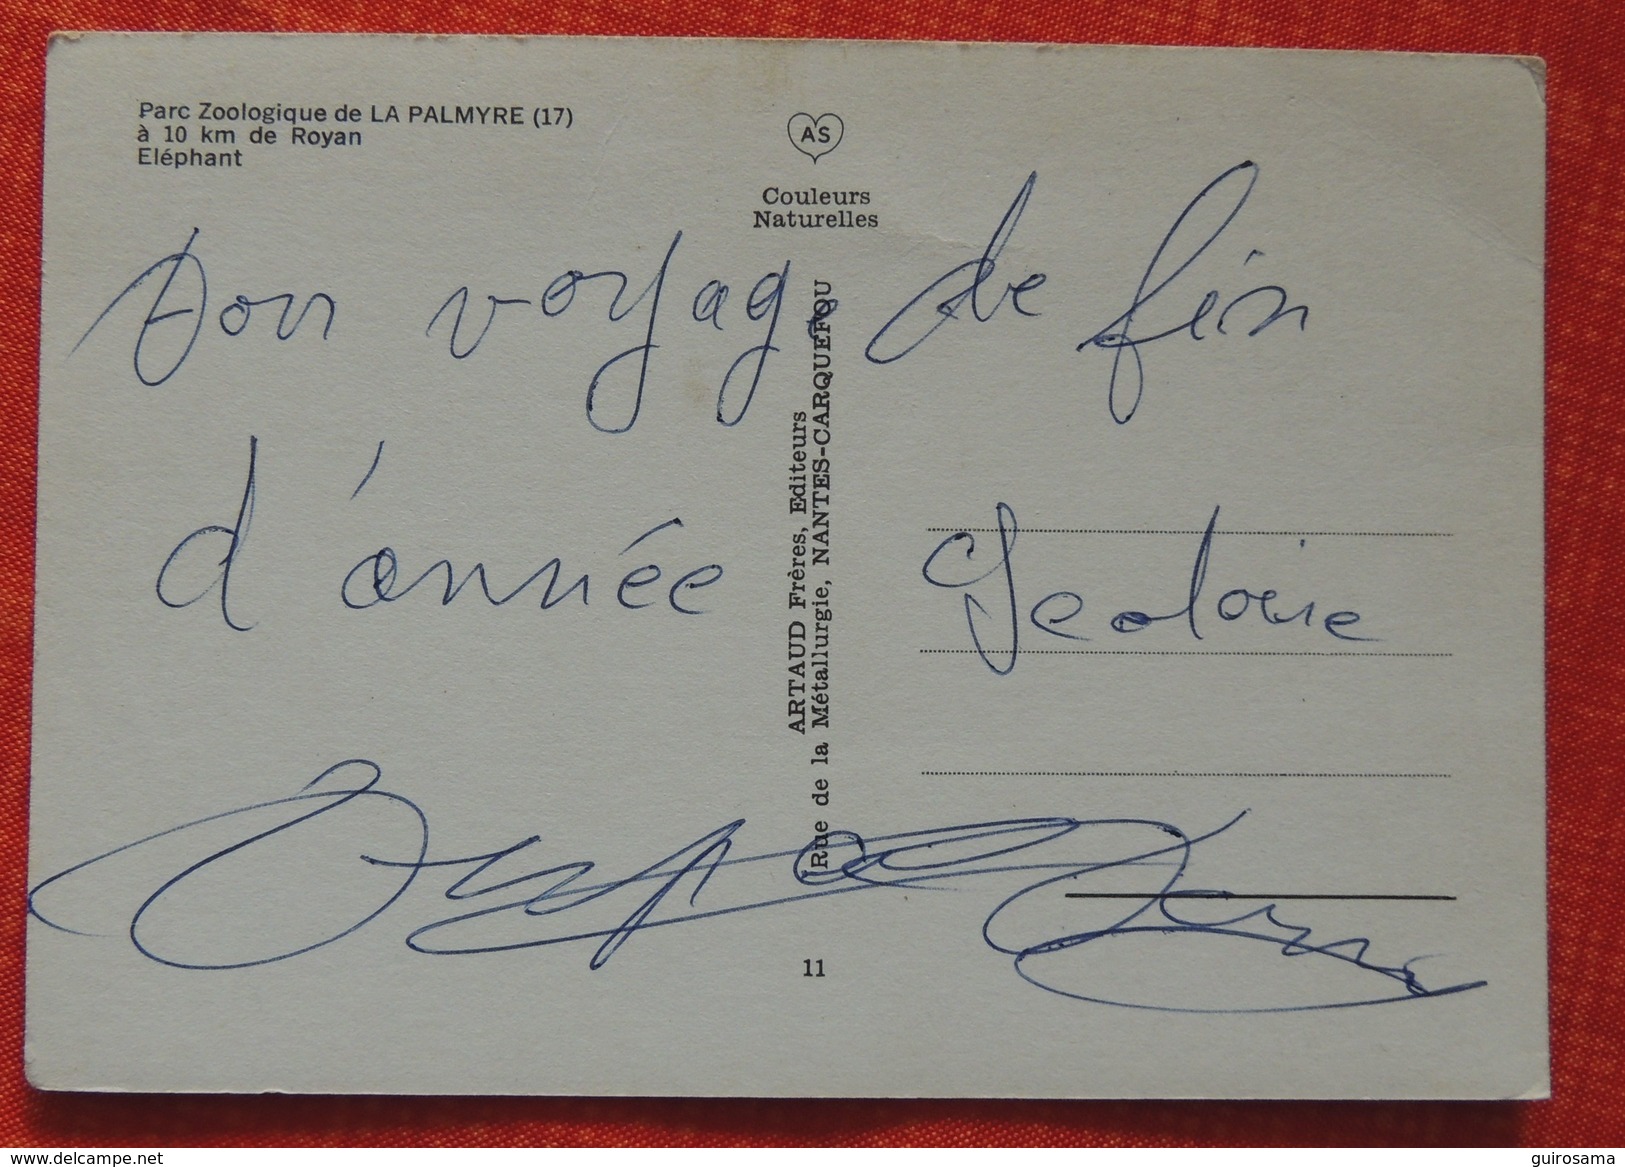 Parc Zoologique de LA PALMYRE (17)
à 10 km de Royan
Eléphant
AS
Couleurs
Naturelles
Bon voyage de fin
d'année
ARTAUD Frères, Editeurs
Rue de la Métallurgie, NANTES-CARQUEFOU
11
www.delcampe.net
guirosama